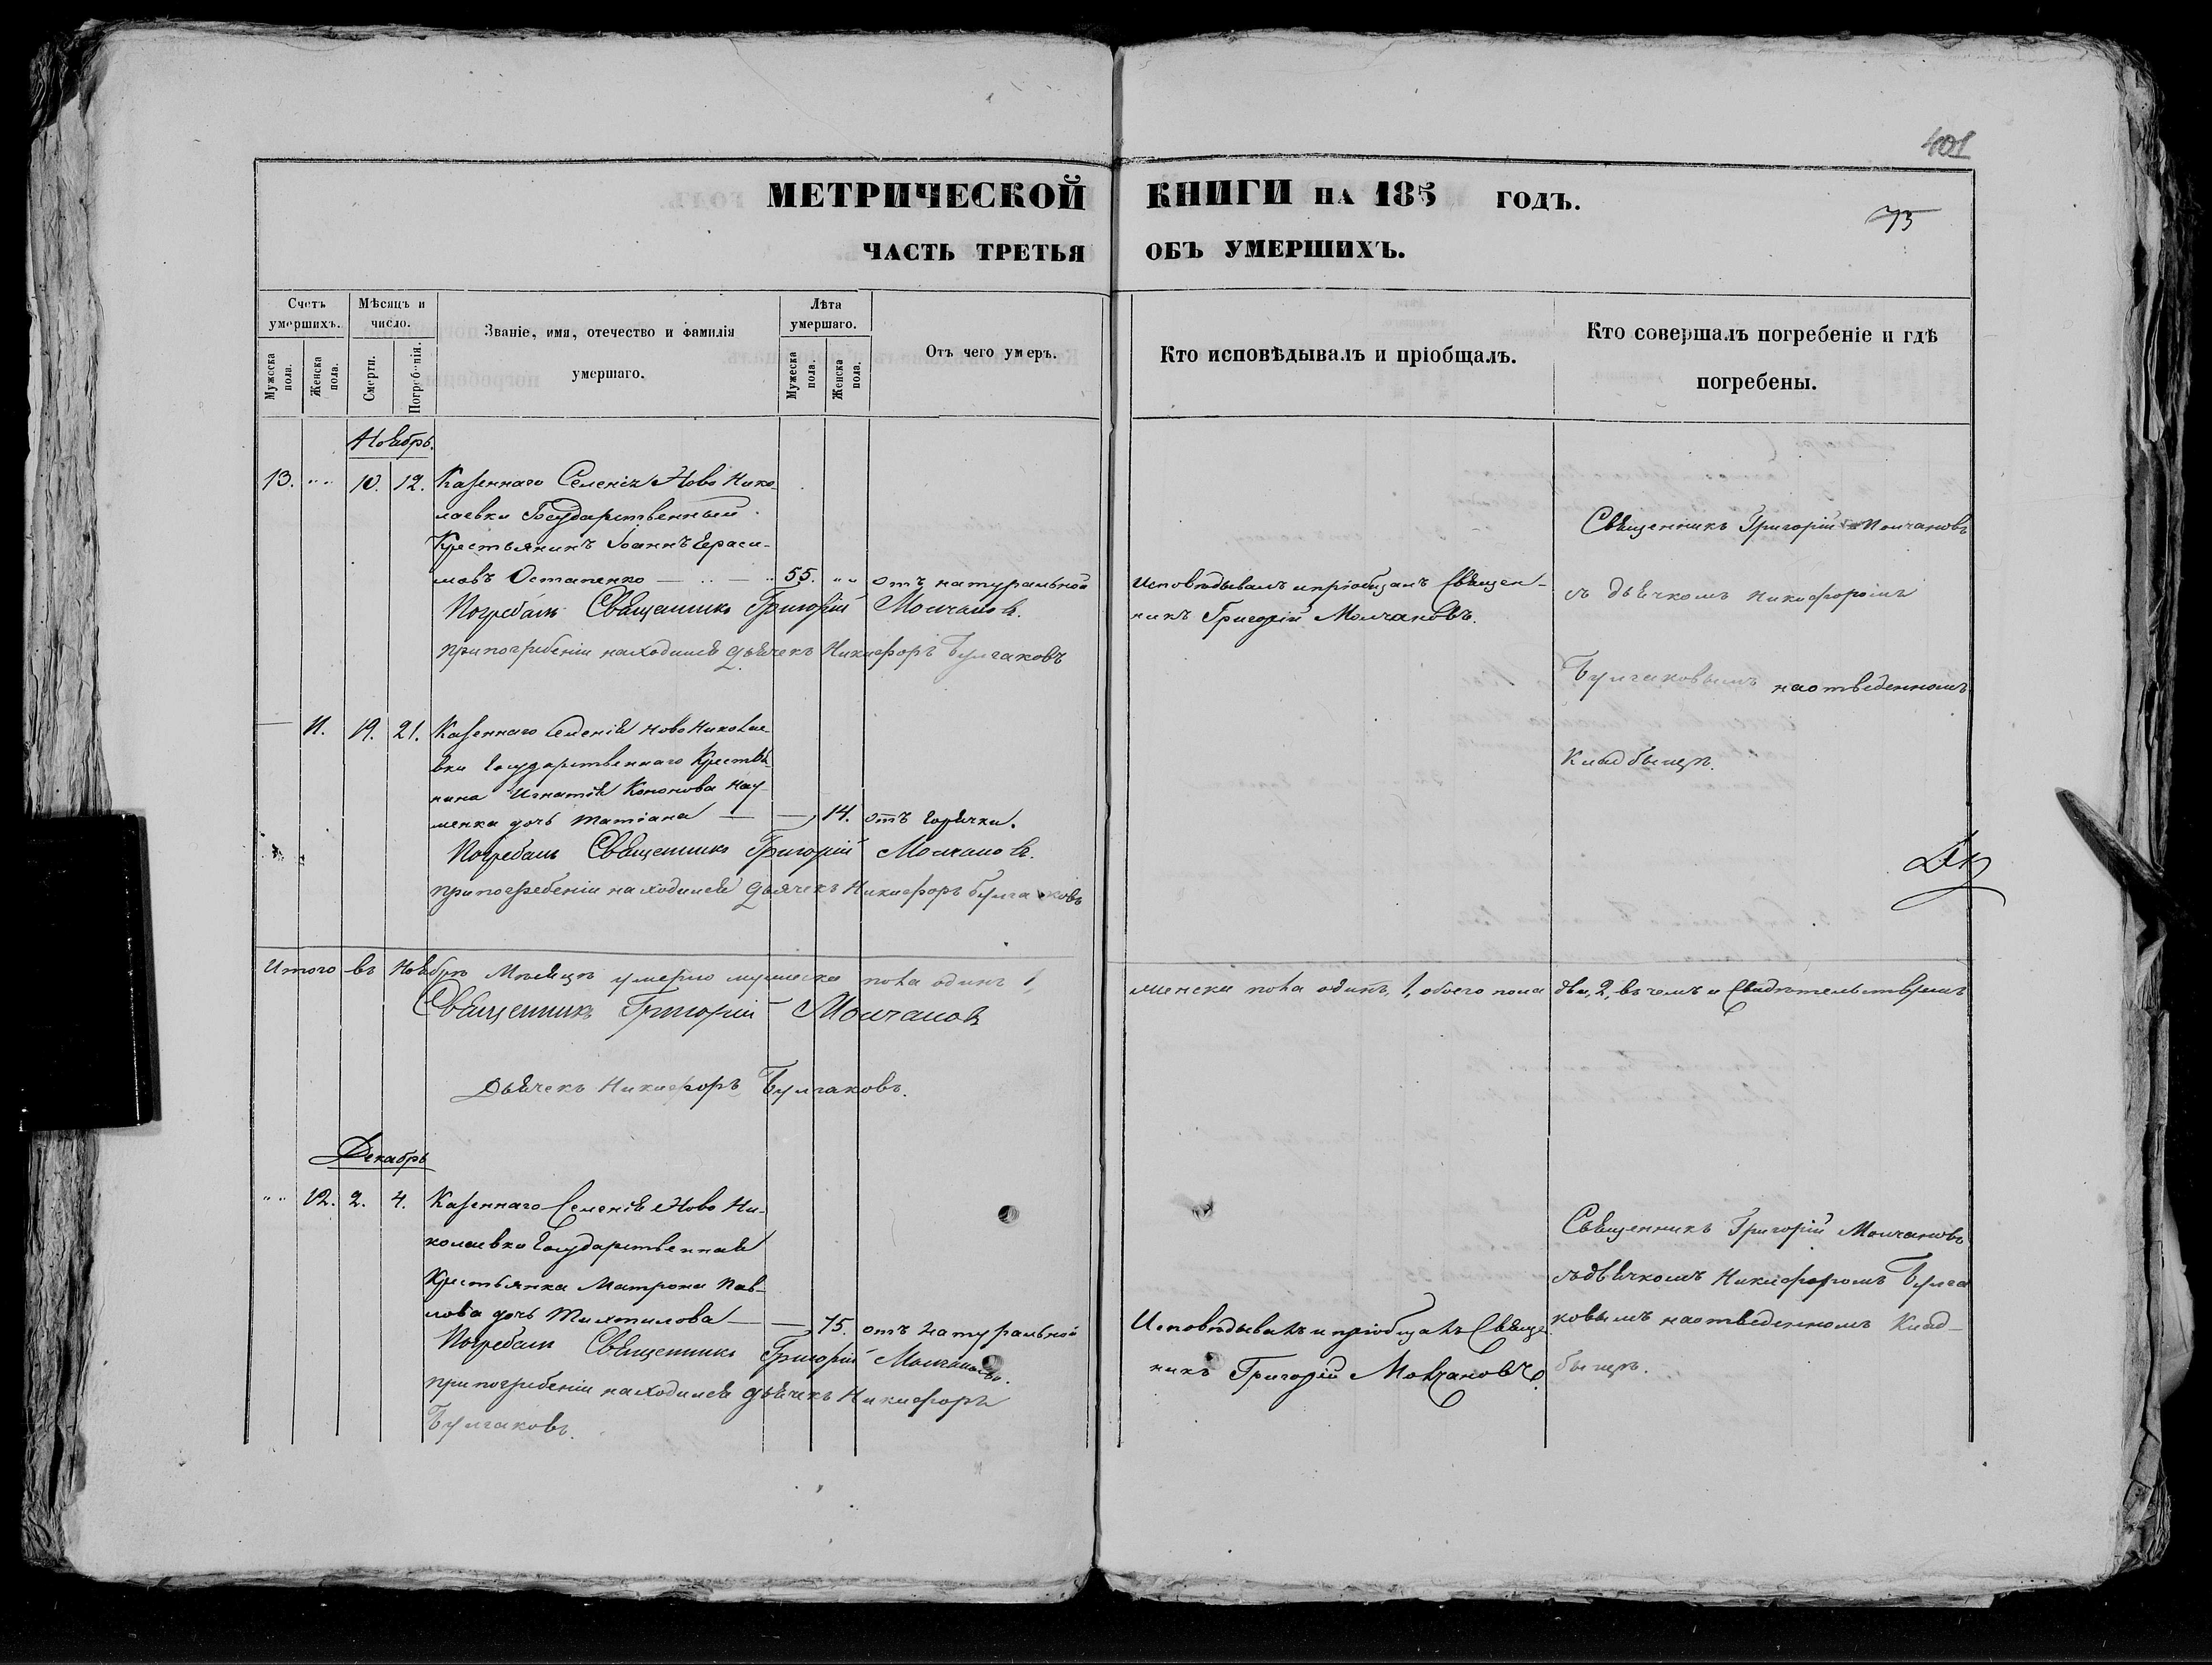 401
МЕТРИЧЕСКОЙ КНИГИ НА 185 ГОДЪ.
75
ЧАСТЬ ТРЕТЬЯ ОБЪ УМЕРШИХЪ.
Счетъ умершихъ.
Мужеска пола.
Женска пола.
Мѣсяцъ и число.
Смерти.
Погребенія.
Званіе, имя, отечество и фамилія
умершаго.
Лѣта умершаго.
Мужеска пола.
Женска пола.
Отъ чего умеръ.
Кто исповѣдывалъ и пріобщалъ.
Кто совершалъ погребеніе и гдѣ
погребены.
Ноябрь.
13. „ „ 10. 12. Казеннаго Селенія Ново Нико-
лаевки Государственный
Крестьянинъ Іоаннъ Гераси-
мовъ Остапенко 55. „ „ отъ натуральной
Погребалъ Священникъ Григорій Молчановъ.
при погребеніи находился дьячекъ Никифоръ Булгаковъ
Исповѣдывалъ и пріобщалъ Священ-
никъ Григорій Молчановъ.
Священникъ Григорій Молчановъ
съ дьячкомъ Никифоромъ
Булгаковымъ на отведенномъ
Кладбищѣ.
— 11. 19. 21. Казеннаго Селенія Ново Николае
вки Государственнаго Крестья
нина Игнатія Кононова Нау-
менка дочь Татіана — — 14. отъ горячки.
Погребалъ Священникъ Григорій Молчановъ.
при погребеніи находился дьячекъ Никифоръ Булгаковъ
Итого въ Ноябрѣ Мѣсяцѣ умерло мужеска пола одинъ 1, женска пола одинъ, 1, обоего пола два, 2, въ чемъ и Свидѣтельствуемъ
Священникъ Григорій Молчановъ
Дьячекъ Никифоръ Булгаковъ.
Декабрь
„ „ 12. 2. 4. Казеннаго Селенія Ново Ни-
колаевки Государственная
Крестьянка Матрона Пав-
лова дочь — — 75. отъ натуральной
Погребалъ Священникъ Григорій Молчановъ.
при погребеніи находился дьячекъ Никифоръ
Булгаковъ.
Исповѣдывалъ и пріобщалъ Священ
никъ Григорій Молчановъ.
Священникъ Григорій Молчановъ
съ дьячкомъ Никифоромъ Булга
ковымъ на отведенномъ Клад-
бищѣ.